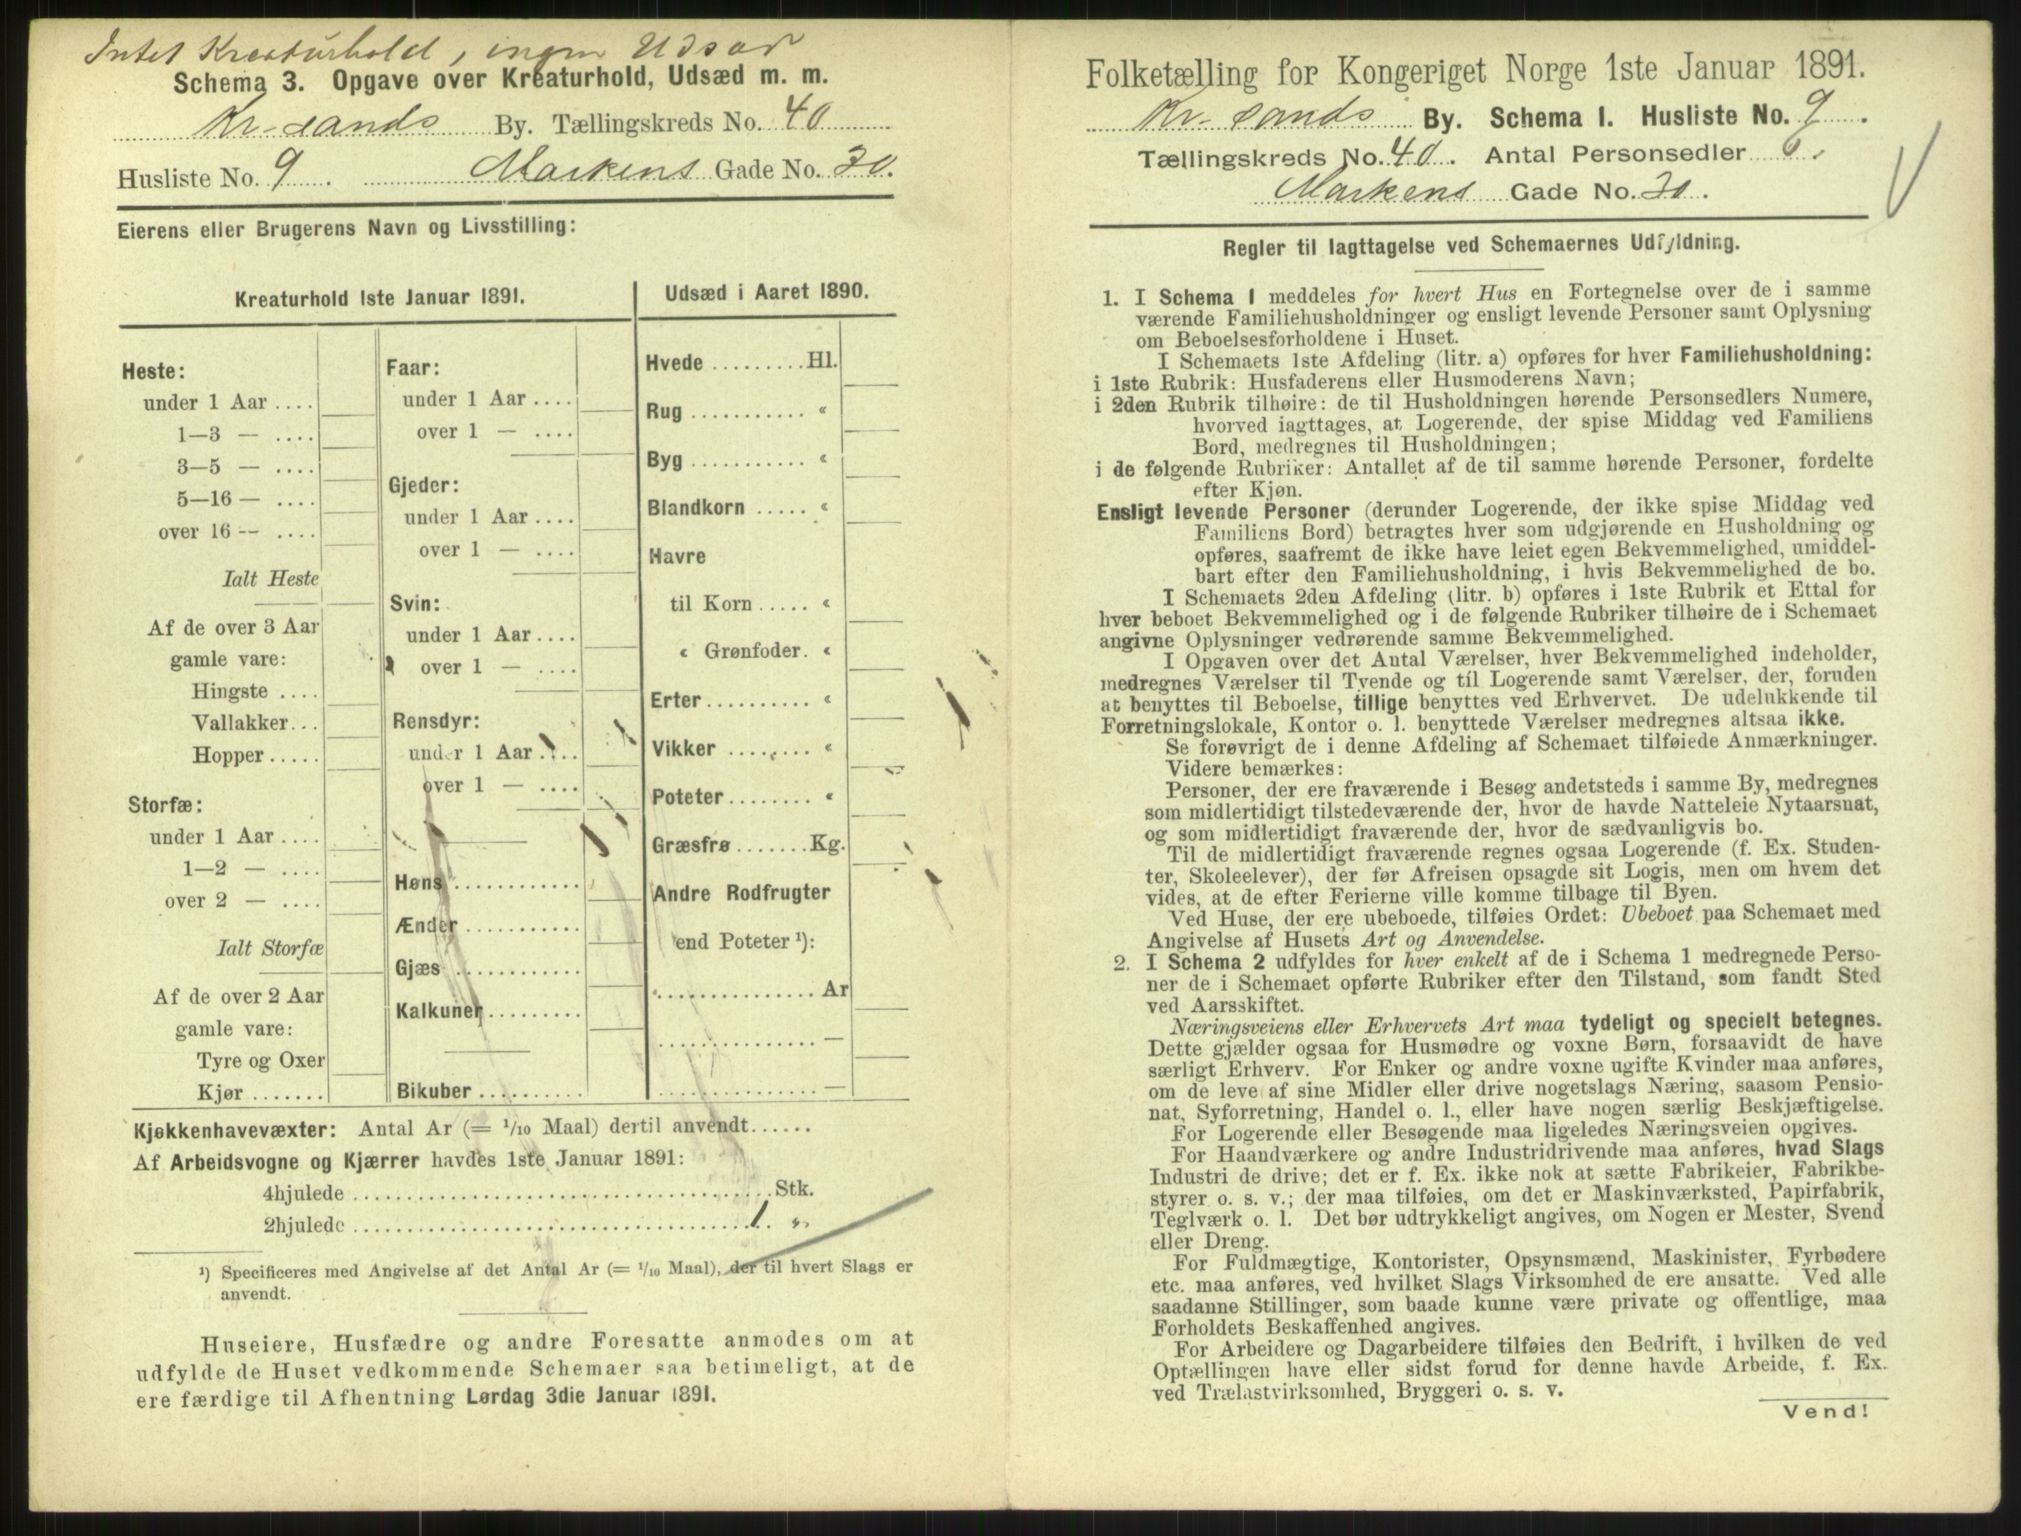 Intet Kreaturhold, ingen Udsæd
Schema 3. Opgave over Kreaturhold, Udsæd m. m.
Kr-sands By. Tællingskreds No. 40
Husliste No. 9 Markens Gade No. 30.
Eierens eller Brugerens Navn og Livsstilling:
Kreaturhold 1ste Januar 1891.
Heste:
under 1 Aar ....
1—3 — ....
3—5 — ....
5—16 — ....
over 16 -- ....
Ialt Heste
Af de over 3 Aar
gamle vare:
Hingste ....
Vallakker...
Hopper.....
Storfæ:
under 1 Aar ....
1—2 — ....
over 2 — ....
Ialt Storfæ
Af de over 2 Aar
gamle vare:
Tyre og Oxer
Kjør .......
Faar:
under 1 Aar ....
over 1 — ....
Gjeder:
under 1 Aar ....
over 1 — ....
Svin:
under 1 Aar ....
over 1 — ....
Rensdyr:
under 1 Aar ....
over 1 — ....
Høns............
Ænder...........
Gjæs ...........
Kalkuner.........
Bikuber ..........
Udsæd i Aaret 1890.
Hvede .........Hl.
Rug ........... "
Byg ........... "
Blandkorn ..... "
Havre
til Korn ..... "
" Grønfoder. "
Erter.......... "
Vikker ........ "
Poteter........ "
Græsfrø .......Kg.
Andre Rodfrugter
end Poteter ¹):
................ Ar
................ —
................ —
Kjøkkenhavevæxter: Antal Ar (= 1/10 Maal) dertil anvendt......
Af Arbeidsvogne og Kjærrer havdes 1ste Januar 1891:
4hjulede ........................................Stk.
2hjulede ........................................ 1 "
¹) Specificeres med Angivelse af det Antal Ar (= 1/10 Maal), der til hvert Slags er
anvendt.
Huseiere, Husfædre og andre Foresatte anmodes om at
udfylde de Huset vedkommende Schemaer saa betimeligt, at de
ere færdige til Afhentning Lørdag 3die Januar 1891.
Folketælling for Kongeriget Norge 1ste Januar 1891.
Kr-sands By. Schema I. Husliste No. 9.
Tællingskreds No. 40. Antal Personsedler 6.
Markens Gade No. 30.
Regler til Iagttagelse ved Schemaernes Udfyldning.
1. I Schema 1 meddeles for hvert Hus en Fortegnelse over de i samme
værende Familiehusholdninger og ensligt levende Personer samt Oplysning
om Beboelsesforholdene i Huset.
I Schemaets 1ste Afdeling (litr. a) opføres for hver Familiehusholdning:
i 1ste Rubrik: Husfaderens eller Husmoderens Navn;
i 2den Rubrik tilhøire: de til Husholdningen hørende Personsedlers Numere,
hvorved iagttages, at Logerende, der spise Middag ved Familiens
Bord, medregnes til Husholdningen;
i de følgende Rubriker: Antallet af de til samme hørende Personer, fordelte
efter Kjøn.
Ensligt levende Personer (derunder Logerende, der ikke spise Middag ved
Familiens Bord) betragtes hver som udgjørende en Husholdning og
opføres, saafremt de ikke have leiet egen Bekvemmelighed, umiddel-
bart efter den Familiehusholdning, i hvis Bekvemmelighed de bo.
I Schemaets 2den Afdeling (litr. b) opføres i 1ste Rubrik et Ettal for
hver beboet Bekvemmelighed og i de følgende Rubriker tilhøire de i Schemaet
angivne Oplysninger vedrørende samme Bekvemmelighed.
I Opgaven over det Antal Værelser, hver Bekvemmelighed indeholder,
medregnes Værelser til Tyende og til Logerende samt Værelser, der, foruden
at benyttes til Beboelse, tillige benyttes ved Erhvervet. De udelukkende til
Forretningslokale, Kontor o. l. benyttede Værelser medregnes altsaa ikke.
Se forøvrigt de i denne Afdeling af Schemaet tilføiede Anmærkninger.
Videre bemærkes:
Personer, der ere fraværende i Besøg andetsteds i samme By, medregnes
som midlertidigt tilstedeværende der, hvor de havde Natteleie Nytaarsnat,
og som midlertidigt fraværende der, hvor de sædvanligvis bo.
Til de midlertidigt fraværende regnes ogsaa Logerende (f. Ex. Studen-
ter, Skoleelever), der før Afreisen opsagde sit Logis, men om hvem det
vides, at de efter Ferierne ville komme tilbage til Byen.
Ved Huse, der ere ubeboede, tilføies Ordet: Ubeboet paa Schemaet med
Angivelse af Husets Art og Anvendelse.
2. I Schema 2 udfyldes for hver enkelt af de i Schema 1 medregnede Perso-
ner de i Schemaet opførte Rubriker efter den Tilstand, som fandt Sted
ved Aarsskiftet.
Næringsveiens eller Erhvervets Art maa tydeligt og specielt betegnes.
Dette gjælder ogsaa for Husmødre og voxne Børn, forsaavidt de have
særligt Erhverv. For Enker og andre voxne ugifte Kvinder maa anføres,
om de leve af sine Midler eller drive nogetslags Næring, saasom Pensio-
nat, Syforretning, Handel o. l., eller have nogen særlig Beskjæftigelse.
For Logerende eller Besøgende maa ligeledes Næringsveien opgives.
For Haandværkere og andre Industridrivende maa anføres, hvad Slags
Industri de drive; det er f. Ex. ikke nok at sætte Fabrikeier, Fabrikbe-
styrer o. s. v.; der maa tilføies, om det er Maskinværksted, Papirfabrik,
Teglværk o. l. Det bør udtrykkeligt angives, om Nogen er Mester, Svend
eller Dreng.
For Fuldmægtige, Kontorister, Opsynsmænd, Maskinister, Fyrbødere
etc. maa anføres, ved hvilket Slags Virksomhed de ere ansatte. Ved alle
saadanne Stillinger, som baade kunne være private og offentlige, maa
Forholdets Beskaffenhed angives.
For Arbeidere og Dagarbeidere tilføies den Bedrift, i hvilken de ved
Optællingen have eller sidst forud for denne havde Arbeide, f. Ex.
ved Trælastvirksomhed, Bryggeri o. s. v.
Vend!